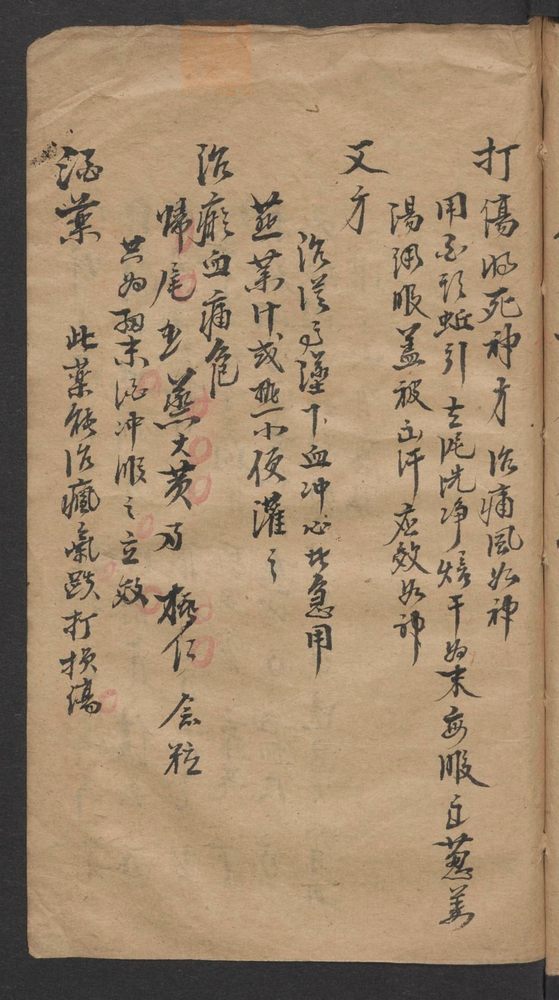 打傷将死神方 治痛風如神
用白頭蚯引去泥洗净焙干為末每服以葱姜
湯調服盖被出汗应效如神
又方
治從高墜下血冲心北急用
韮菜汁或熱小便灌之
治瘀血痛危
歸尾 蒸大黄 桃仁 粒
共為細末酒冲服之立效
酒藥 此藥能治瘋氣跌打损傷